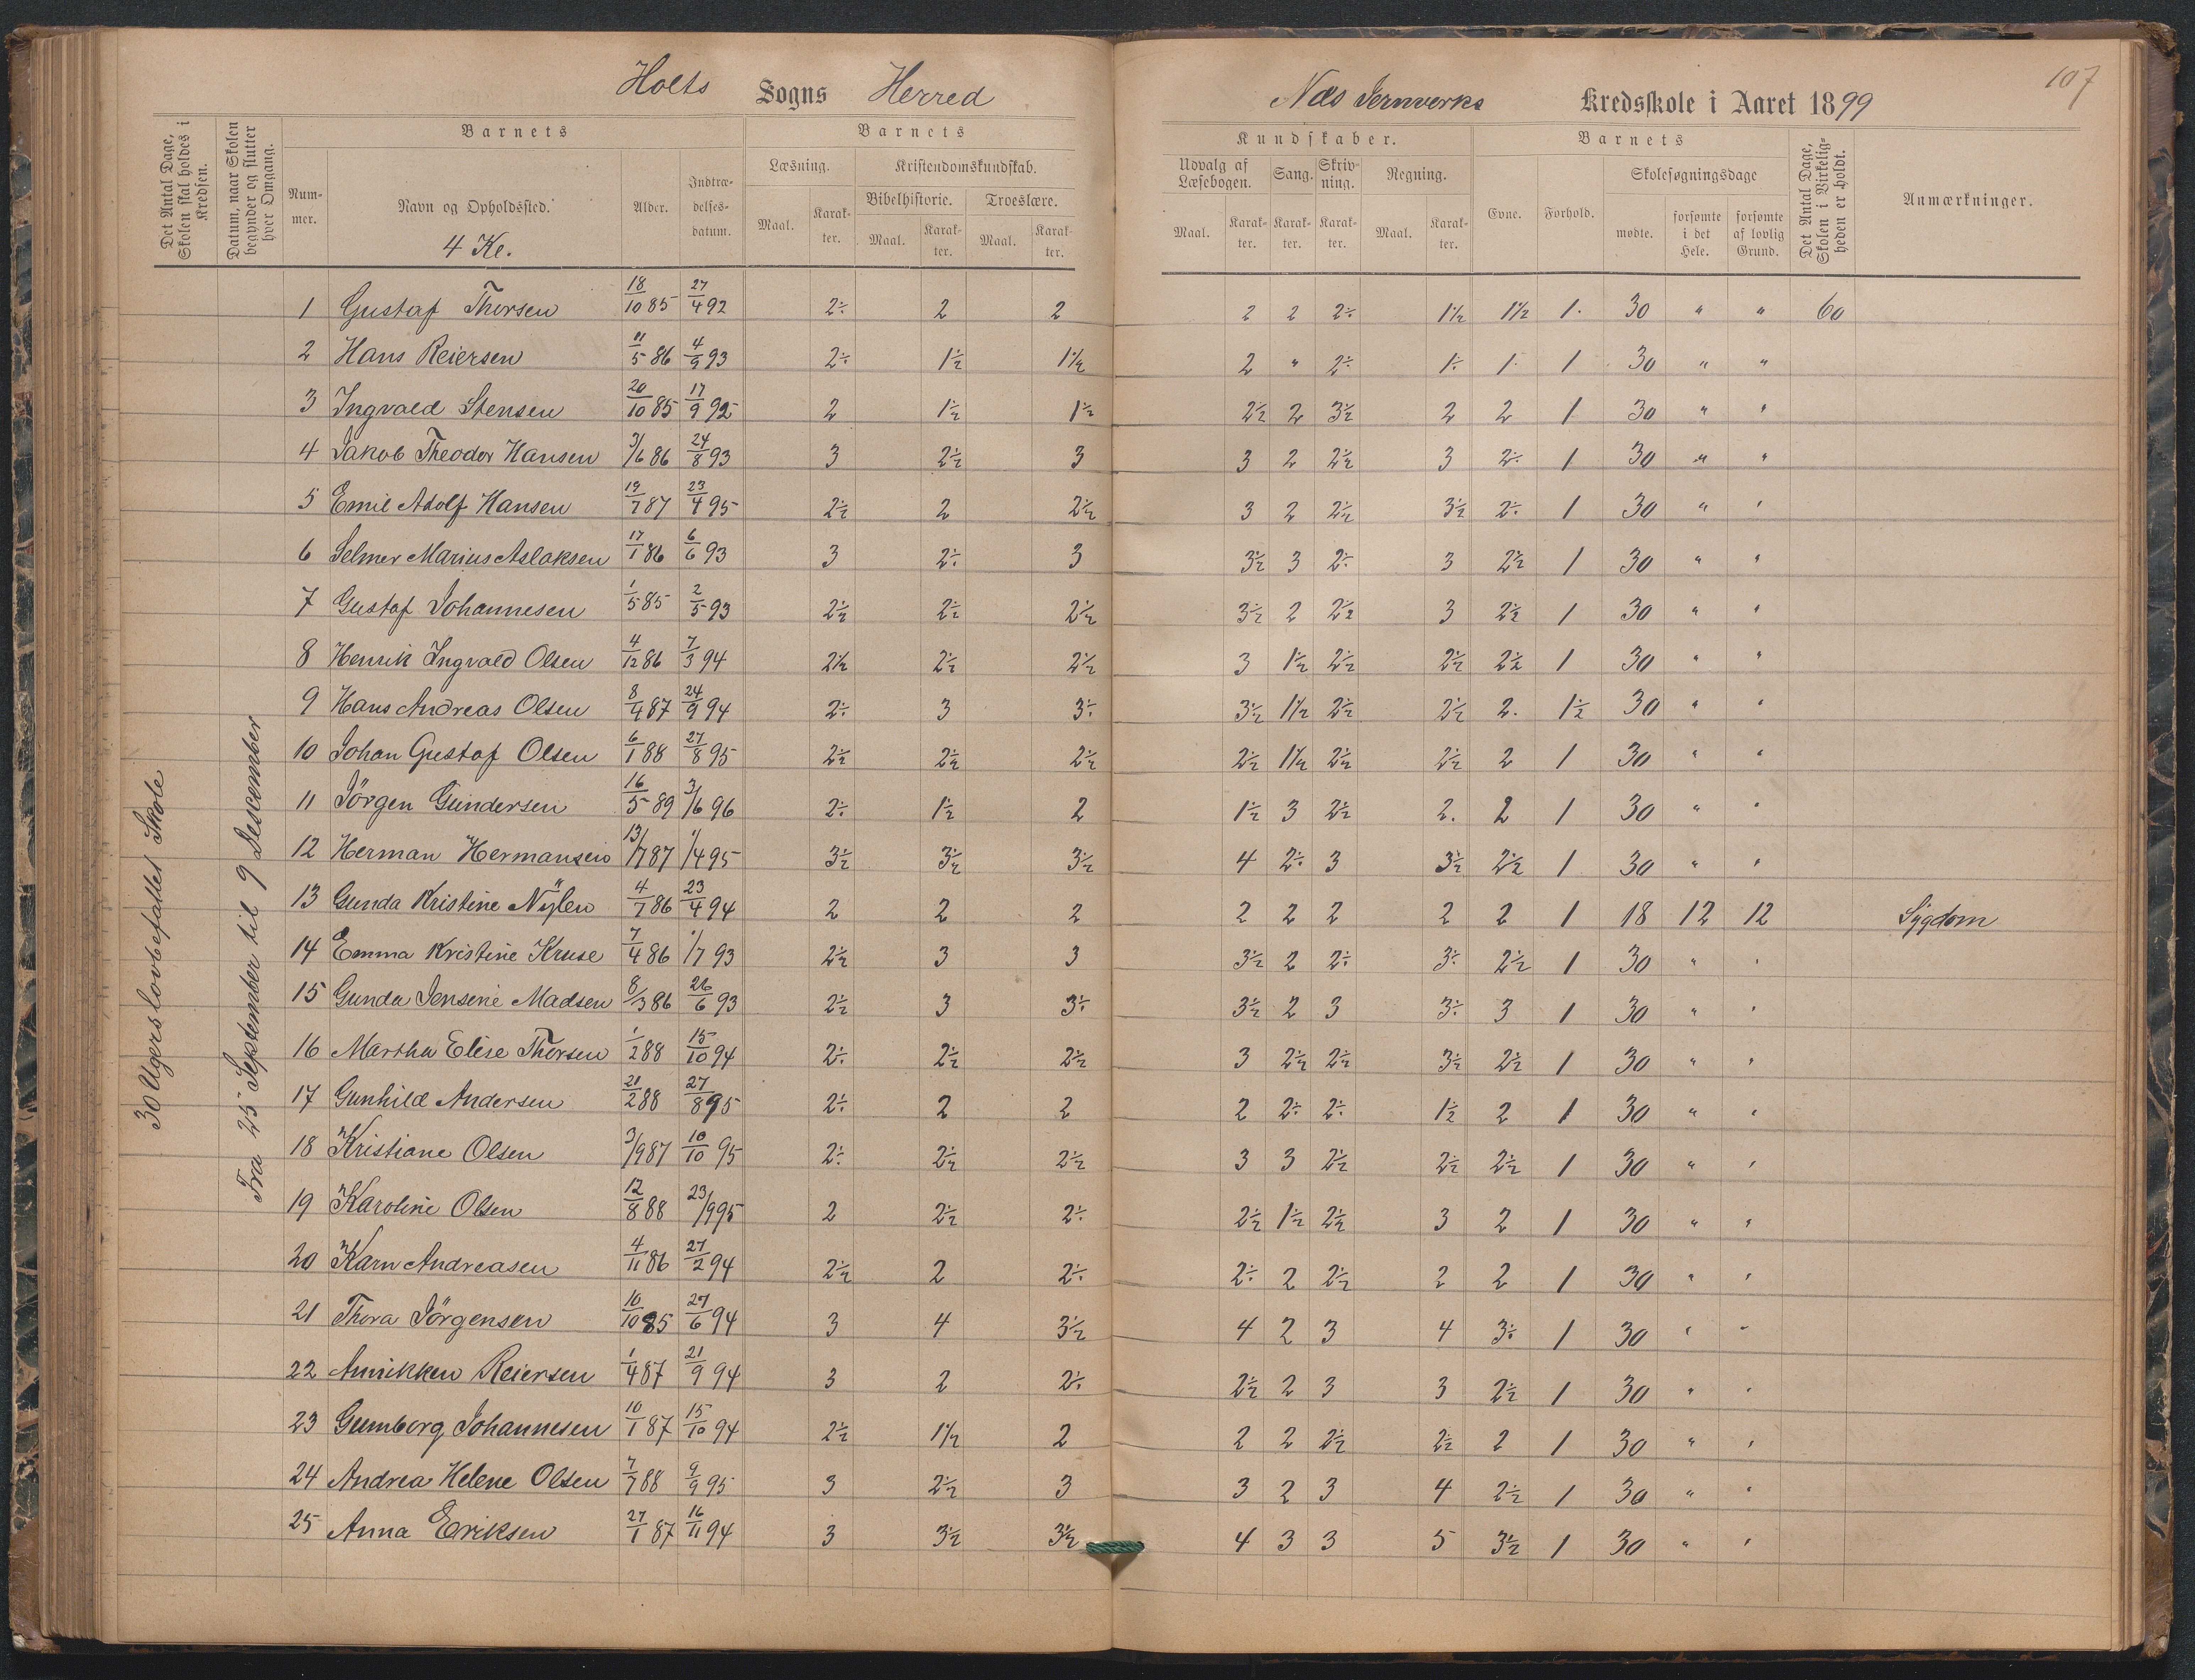 107
Holts Sogns Herred Næs Jernverks Kredsskole i Aaret 1899
Det Antal Dage, Skolen skal holdes i Kredsen.
Datum, naar Skolen begynder og slutter hver Omgang.
Barnets
Nummer.
Navn og Opholdssted.
4 Kl.
Alder.
Indtrædelsesdatum.
Barnets
Læsning.
Maal. Karakter.
Kristendomskundskab.
Bibelhistorie.
Maal. Karakter.
Troeslære.
Maal. Karakter.
Kundskaber.
Udvalg af Læsebogen.
Maal. Karakter.
Sang.
Karakter.
Skrivning.
Karakter.
Regning.
Maal. Karakter.
Barnets
Evne. Forhold.
Skolesøgningsdage
mødte. forsømte i det Hele. forsømte af lovlig Grund.
Det Antal Dage, Skolen i Virkeligheden er holdt.
Anmærkninger.
30 Ugers lovbefallet Skole
Fra 25 September til 9 Descember
1 Gustaf Thorsen 18/10 85 27/4 92 2÷ 2 2 2 2 2÷ 1½ 1½ 1. 30 " " 60
2 Hans Reiersen 11/5 86 4/9 93 2÷ 1½ 1½ 2 " 2÷ 1÷ 1. 1 30 " "
3 Ingvald Stensen 20/10 85 17/9 92 2 1½ 1½ 2½ 2 3½ 2 2 1 30 " "
4 Jakob Theodor Hansen 3/6 86 24/8 93 3 2½ 3 3 2 2½ 3 2÷ 1 30 " "
5 Emil Adolf Hansen 19/7 87 23/4 95 2½ 2 2½ 3 2 2½ 3½ 2÷ 1 30 " "
6 Selmer Marius Aslaksen 17/1 86 6/6 93 3 2÷ 3 3½ 3 2÷ 3 2½ 1 30 " "
7 Gustaf Johannesen 1/5 85 2/5 93 2½ 2½ 2½ 3½ 2 2½ 3 2½ 1 30 " "
8 Henrik Ingvald Olsen 4/12 86 7/3 94 2½ 2½ 2½ 3 1½ 2½ 2½ 2½ 1 30 " "
9 Hans Andreas Olsen 8/4 87 24/9 94 2÷ 3 3÷ 3½ 1½ 2½ 2½ 2. 1½ 30 " "
10 Johan Gustaf Olsen 6/1 88 27/8 95 2½ 2½ 2½ 2½ 1½ 2½ 2½ 2 1 30 " "
11 Jörgen Gundersen 16/5 89 3/6 96 2÷ 1½ 2 1½ 3 2½ 2. 2 1 30 " "
12 Herman Hermansen 13/7 87 1/4 95 3½ 3½ 3½ 4 2÷ 3 3½ 2½ 1 30 " "
13 Gunda Kristine Nÿlen 4/7 86 23/4 94 2 2 2 2 2 2 2 2 1 18 12 12 Sygdom
14 Emma Kristine Kruse 7/4 86 1/7 93 2½ 3 3 3½ 2 2÷ 3÷ 2½ 1 30 " "
15 Gunda Jensine Madsen 8/3 86 26/6 93 2½ 3 3÷ 3½ 2 3 3÷ 3 1 30 " "
16 Martha Elise Thorsen 1/2 88 15/10 94 2÷ 2½ 2½ 3 2½ 2½ 3½ 2½ 1 30 " "
17 Gunhild Andersen 21/2 88 27/8 95 2÷ 2 2 2 2÷ 2÷ 1½ 2 1 30 " "
18 Kristiane Olsen 3/9 87 10/10 95 2÷ 2½ 2½ 3 3 2½ 2½ 2½ 1 30 " "
19 Karoline Olsen 12/8 88 23/9 95 2 2½ 2÷ 2½ 1½ 2½ 3 2 1 30 " "
20 Karn Andreasen 4/11 86 27/2 94 2½ 2 2÷ 2÷ 2 2½ 2 2 1 30 " "
21 Thora Jörgensen 10/10 85 27/6 94 3 4 3½ 4 2 3 4 3÷ 1 30 " "
22 Annikken Reiersen 1/4 87 21/9 94 3 2 2÷ 2½ 2 3 3 2½ 1 30 " "
23 Gumborg Johannesen 10/1 87 15/10 94 2½ 1½ 2 2 2 2½ 2½ 2 1 30 " "
24 Andrea Helene Olsen 7/7 88 9/9 95 3 2½ 3 3 2 3 4 2½ 1 30 " "
25 Anna Eriksen 27/1 87 16/11 94 3 3½ 3½ 4 3 3 5 3½ 1 30 " "